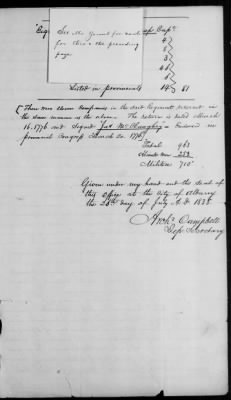 "Big
See Mr Garrat for
for this & the preceding
page
Capt
4
5
3
4
2
Listed in provincials 19 81
[There were eleven Companies in the said Regiment returned in
the same manner as the above. The return is dated March
16. 1776 and signed Jno McClaughry & endorsed in
provincial Congress March 20. 1776]
Total 963
Minute men 253
Militia 710
Given under my hand and the seal of
this office in the City of Albany
the 28th day of July A.D. 1838
Archd Campbell
Dep. Secretary